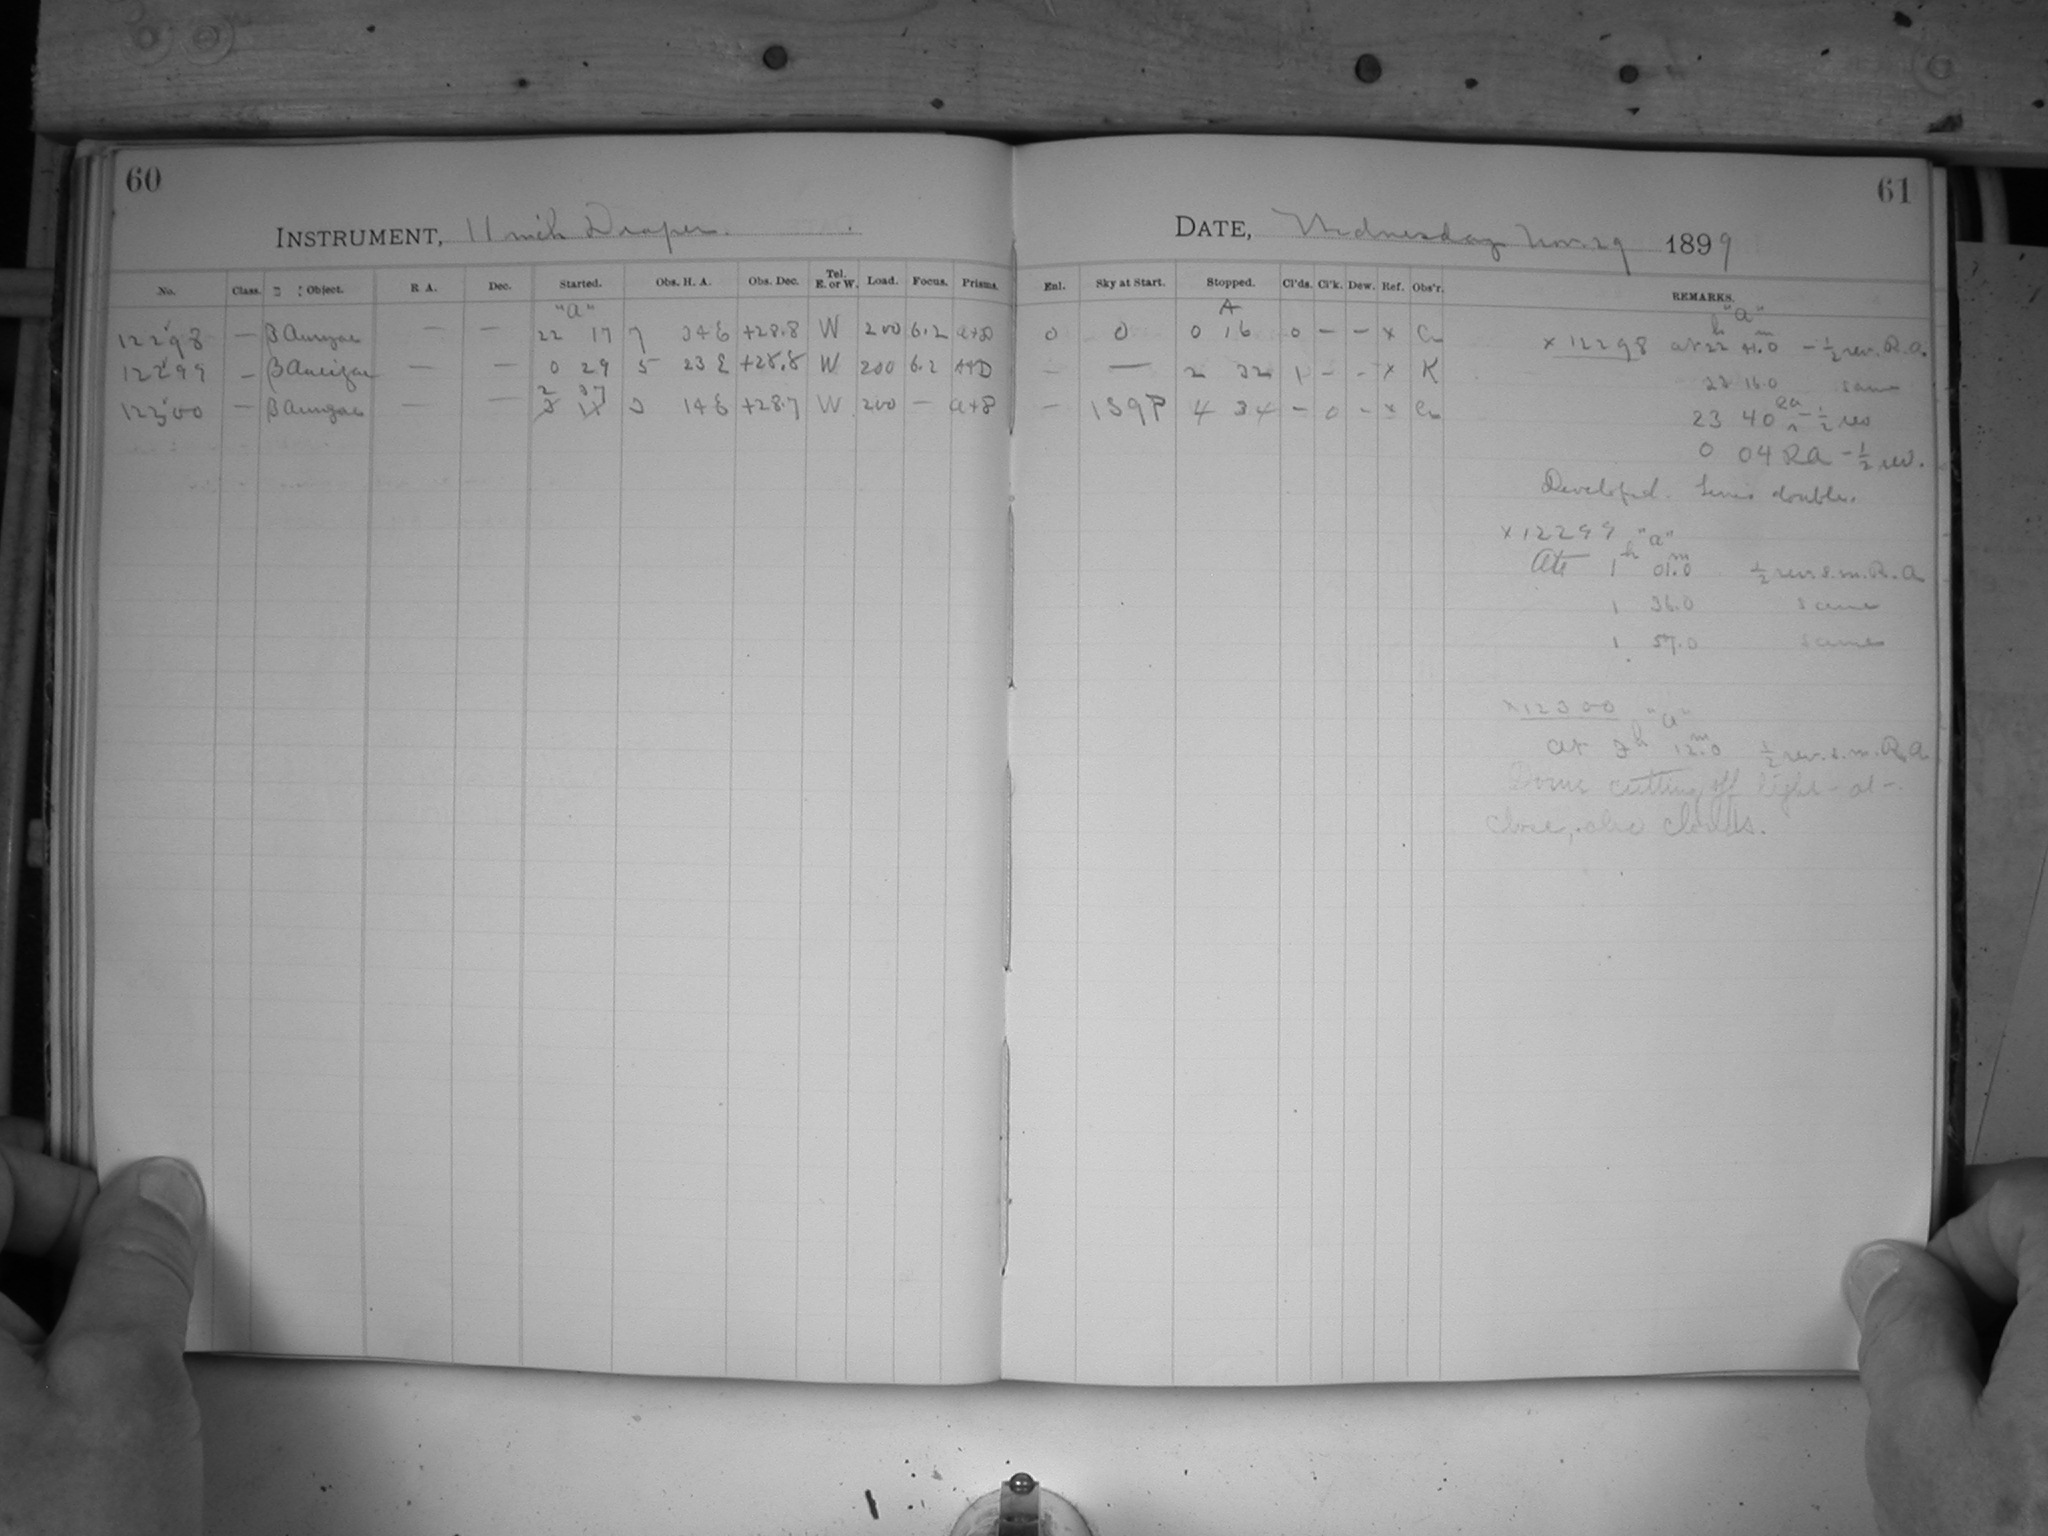 60
INSTRUMENT, 11 inch Draper.
No. Class. Object. R A. Dec. Started. Obs. H. A. Obs. Dec. Tel. E. or W. Load. Focus. Prisms.
"a"
12298 — β Aurigae — — 22 17 7 34 E +28.8 W 200 6.2 a+D
12299 — β Aurigae — — 0 29 5 23 E +28.8 W 200 6.2 A+D
2 37
12300 — β Aurigae — — 3 14 E +28.7 W 200 — a+D
61
DATE, Wednesday Nov. 29 1899
Enl. Sky at Start. Stopped. Cl'ds. Cl'k. Dew. Ref. Obs'r. REMARKS.
A
0 0 0 16 0 – – x
— — 2 32 1 – – x K
— 4 34 – 0 – x
"a"
x 12298 at 22h 41.0m – ½ rev. R.A.
16.0 same
23 40 RA – ½ rev
0 04 RA – ½ rev.
Developed. Lines double.
x 12299 "a"
At 1h 01.0m ½ rev. s.m. R.A
1 36.0 same
1 57.0 same
x 12300 "a"
at 12.0m ½ rev. s.m. R.A
Dome cutting off light at
close, also clouds.